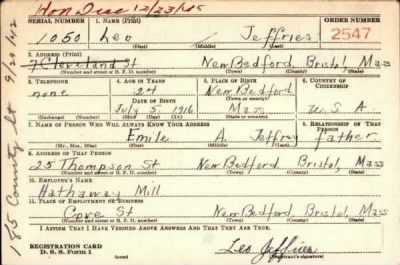 Hon Disc 12/23/45
SERIAL NUMBER 1. NAME (Print) ORDER NUMBER
1050 Leo Jeffries 2547
(First) (Middle) (Last)
2. ADDRESS (Print)
7 Cleveland St New Bedford, Bristol, Mass
(Number and street or R. F. D. number) (Town) (County) (State)
3. TELEPHONE 4. AGE IN YEARS 5. PLACE OF BIRTH 6. COUNTRY OF CITIZENSHIP
none 24 New Bedford
DATE OF BIRTH (Town or county)
July 5, 1916 Mass U S A
(Exchange) (Number) (Mo.) (Day) (Yr.) (State or country)
7. NAME OF PERSON WHO WILL ALWAYS KNOW YOUR ADDRESS 8. RELATIONSHIP OF THAT PERSON
Emile A. Jeffrey father
(Mr., Mrs., Miss) (First) (Middle) (Last)
9. ADDRESS OF THAT PERSON
25 Thompson St New Bedford Bristol, Mass
(Number and street or R. F. D. number) (Town) (County) (State)
10. EMPLOYER'S NAME
Hathaway Mill
11. PLACE OF EMPLOYMENT OR BUSINESS
Cove St New Bedford, Bristol, Mass
(Number and street or R. F. D. number) (Town) (County) (State)
I AFFIRM THAT I HAVE VERIFIED ABOVE ANSWERS AND THAT THEY ARE TRUE.
REGISTRATION CARD
D. S. S. Form 1
Leo Jeffries
(Registrant's signature)
185 County St 9/29/42